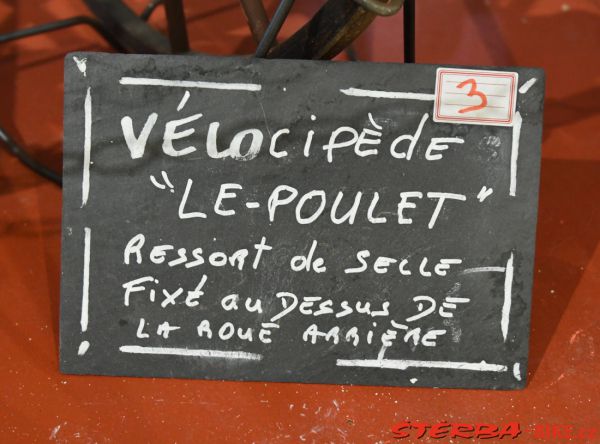 3
VÉLOCIPÈDE
"LE-POULET"
RESSORT de SELLE
FIXÉ au DESSUS DE
LA ROUE ARRIÈRE
STERBA